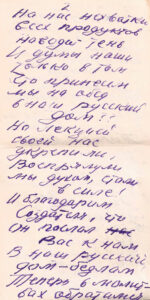 2
На нас нехватки
всех продуктов
находит тень
И думы наши
только о том
Что принесём
мы на обед
в наш русский
дом!!
Но Лекцией
своей нас
укрепили,
Воспрянули
мы духом, стали
в силе!
И благодарим
Создателя, что
Он послал
Вас к нам
В наш русский
дом-бедлам
Теперь в молит-
вах обратимся